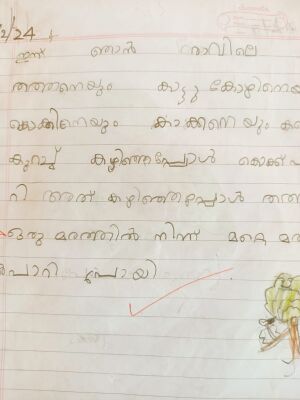 2/24
ഇന്ന് ഞാൻ രാവിലെ
തത്തനെയും കാട്ടു കോഴിനെയ
കൊക്കിനെയും കാക്കനെയും ക
കുറച്ച് കഴിഞ്ഞപ്പോൾ കൊക്ക് പ
റി അത് കഴിഞ്ഞപ്പോൾ തത്ത
ഒരു മരത്തിൽ നിന്ന് മറ്റെ മര
പാറി പോയി